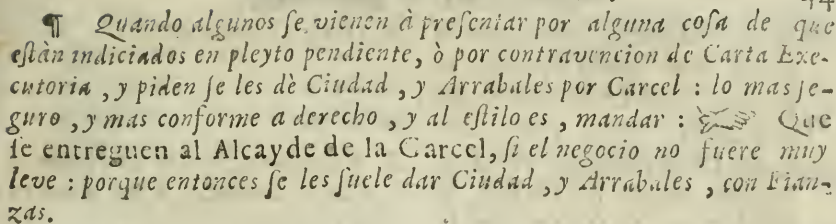 ¶ Quando algunos ſe vienen à preſentar por alguna coſa de que
eſtàn indiciados en pleyto pendiente, ò por contravencion de Carta Exe-
cutoria, y piden ſe les dè Ciudad, y Arrabales por Carcel: lo mas ſe-
guro, y mas conforme a derecho, y al eſtilo es, mandar: Que
ſe entreguen al Alcayde de la Carcel, ſi el negocio no fuere muy
leve: porque entonces ſe les ſuele dar Ciudad, y Arrabales, con Fian-
zas.